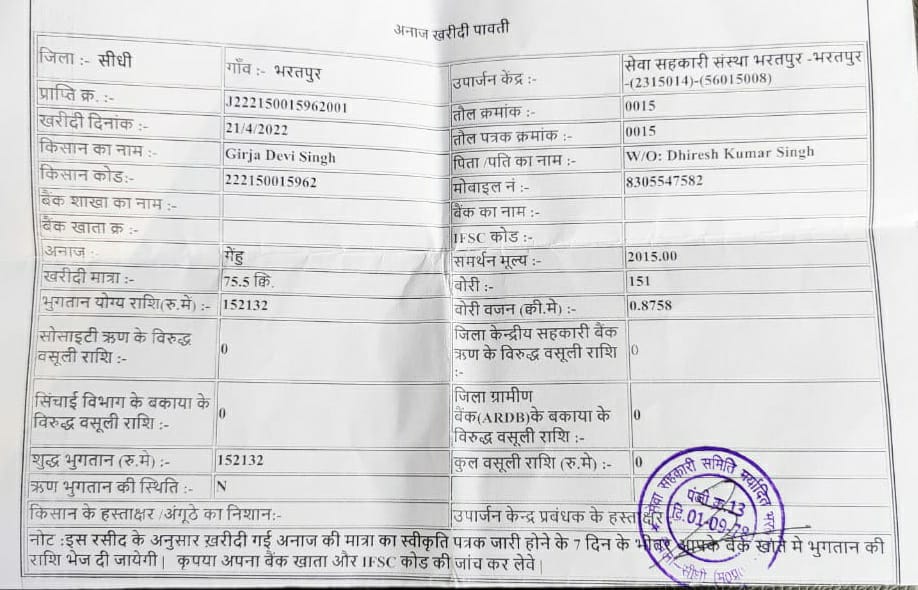 अनाज खरीदी पावती
जिला :- सीधी गाँव :- भरतपुर उपार्जन केंद्र :- सेवा सहकारी संस्था भरतपुर -भरतपुर
-(2315014)-(56015008)
प्राप्ति क्र. :- J222150015962001 तौल क्रमांक :- 0015
खरीदी दिनांक :- 21/4/2022 तौल पत्रक क्रमांक :- 0015
किसान का नाम :- Girja Devi Singh पिता /पति का नाम :- W/O: Dhiresh Kumar Singh
किसान कोड:- 222150015962 मोबाइल नं :- 8305547582
बैंक शाखा का नाम :- बैंक का नाम :-
बैंक खाता क्र :- IFSC कोड :-
अनाज :- गेंहु समर्थन मूल्य :- 2015.00
खरीदी मात्रा :- 75.5 कि. वोरी :- 151
भुगतान योग्य राशि(रु.मे) :- 152132 वोरी वजन (क्वी.मे) :- 0.8758
सोसाइटी ऋण के विरुद्ध
वसूली राशि :- 0
जिला केन्द्रीय सहकारी बैंक
ऋण के विरुद्ध वसूली राशि
:- 0
सिंचाई विभाग के बकाया के
विरुद्ध वसूली राशि :- 0
जिला ग्रामीण
बैंक(ARDB)के बकाया के
विरुद्ध वसूली राशि :- 0
शुद्ध भुगतान (रु.मे) :- 152132 कुल वसूली राशि (रु.मे) :- 0
ऋण भुगतान की स्थिति :- N
किसान के हस्ताक्षर /अंगूठे का निशान:- उपार्जन केन्द्र प्रबंधक के
नोट :इस रसीद के अनुसार ख़रीदी गई अनाज की मात्रा का स्वीकृति पत्रक जारी होने के 7 दिन के भीतर आपके बैंक खाते मे भुगतान की
राशि भेज दी जायेगी | कृपया अपना बैंक खाता और IFSC कोड की जांच कर लेवे |
सेवा सहकारी समिति मर्यादित
पंजी क्र.13
दि.01-09-78
सीधी (म0प्र0